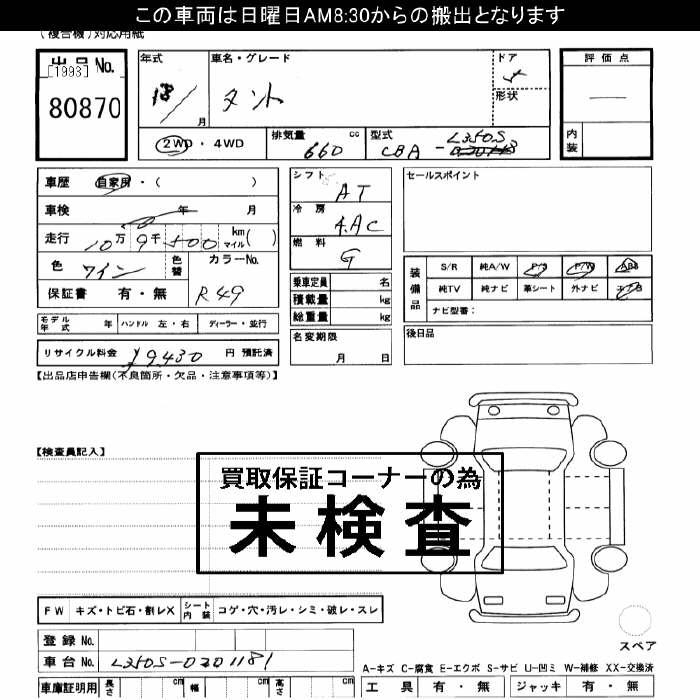 この車両は日曜日AM8:30からの搬出となります
(複合機)対応用紙
出品No. [1993] 80870
年式 18/ 月
車名・グレード タント
ドア 5
形状
評価点 —
内装
2WD・4WD
排気量 660 cc
型式 CBA - L350S
車歴 自家用・( )
車検 年 月
走行 10万 9千 500 km マイル( )
色 ワイン 色替 カラーNo. R49
保証書 有・無
モデル年式 年 ハンドル 左・右 ディーラー・並行
リサイクル料金 ¥9,430 円 預託済
シフト AT
冷房 AAC
燃料 G
乗車定員 名
積載量 kg
総重量 kg
名変期限 月 日
セールスポイント
装備品 S/R 純A/W P/S P/W ABS
純TV 純ナビ 革シート 外ナビ エアB
ナビ型番:
後日品
【出品店申告欄(不良箇所・欠品・注意事項等)】
【検査員記入】
買取保証コーナーの為
未検査
FW キズ・トビ石・割レX シート内装 コゲ・穴・汚レ・シミ・破レ・スレ
登録No.
車台No. L350S-0201181
車庫証明用 長さ cm 幅 cm 高さ cm
スペア
A-キズ C-腐食 E-エクボ S-サビ U-凹ミ W-補修 XX-交換済
工具 有・無 ジャッキ 有・無